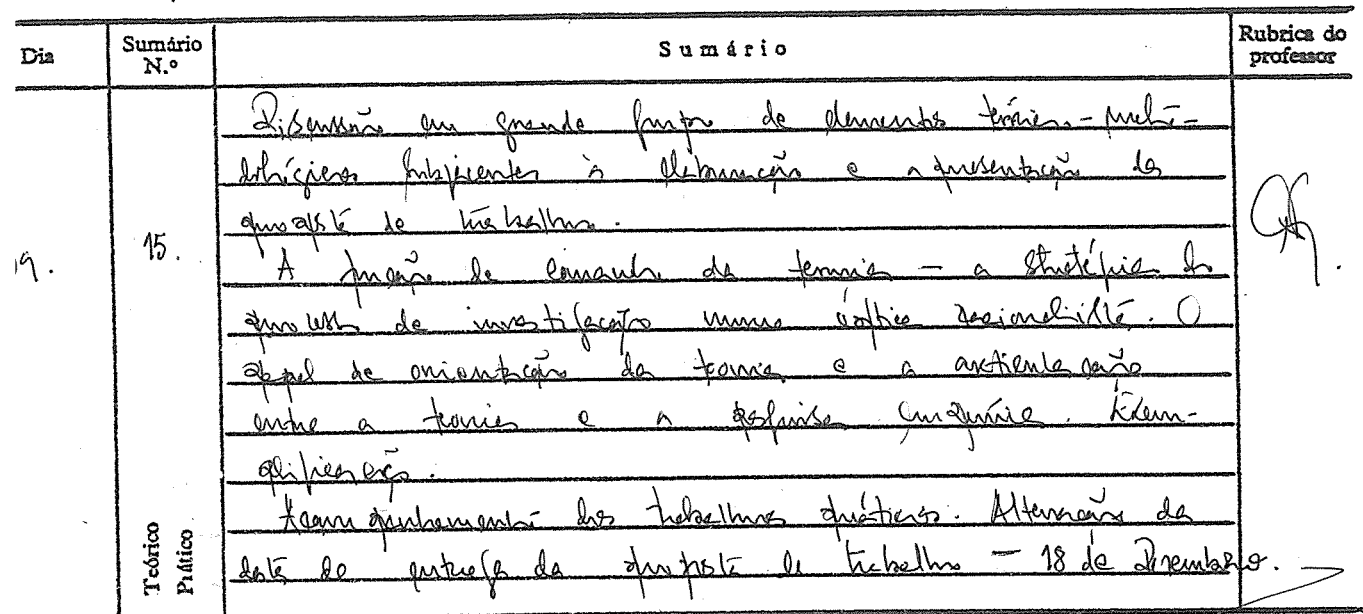 Dia
Sumário N.º
Sumário
Rubrica do professor
19.
15.
Teórico Prático
Discussão em grande grupo de elementos teórico-meto-
dológicos subjacentes à elaboração e apresentação da
proposta de trabalho.
A função de comando da teoria — a estratégia do
processo de investigação numa óptica racionalista. O
papel de orientação da teoria e a articulação
entre a teoria e a pesquisa empírica. Exem-
plificação.
Acompanhamento dos trabalhos práticos. Alteração da
data de entrega da proposta de trabalho — 18 de Dezembro.